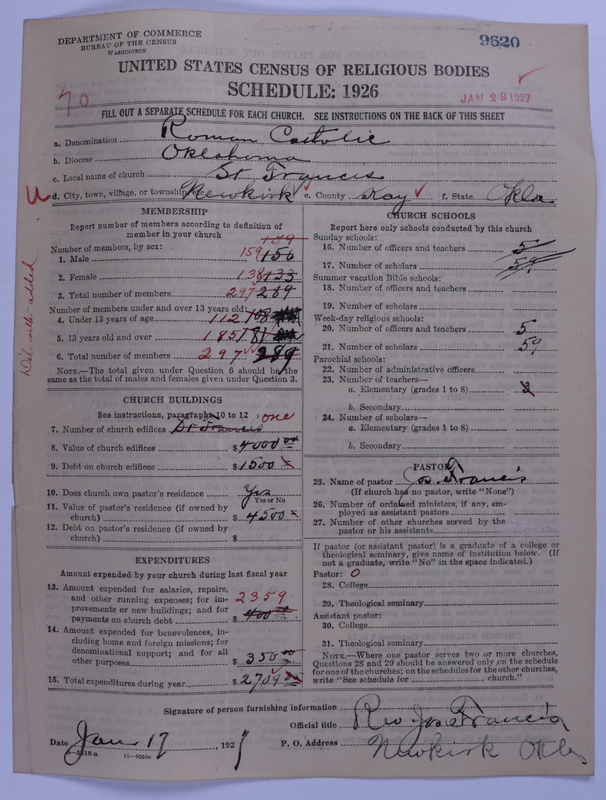 DEPARTMENT OF COMMERCE
BUREAU OF THE CENSUS
WASHINGTON
9620
UNITED STATES CENSUS OF RELIGIOUS BODIES
SCHEDULE: 1926
70
JAN 28 1927
FILL OUT A SEPARATE SCHEDULE FOR EACH CHURCH. SEE INSTRUCTIONS ON THE BACK OF THIS SHEET
a. Denomination Roman Catholic
b. Diocese Oklahoma
c. Local name of church St Francis
d. City, town, village, or township Newkirk e. County Kay f. State Okla
MEMBERSHIP
Report number of members according to definition of
member in your church
Number of members, by sex:
159
1. Male 159 156
2. Female 138 133
3. Total number of members 297 289
Number of members under and over 13 years old:
4. Under 13 years of age 112 108
5. 13 years old and over 185 181
6. Total number of members 297 289
NOTE.—The total given under Question 6 should be the
same as the total of males and females given under Question 3.
CHURCH BUILDINGS
See instructions, paragraphs 10 to 12 one
7. Number of church edifices St Francis
8. Value of church edifices $ 4000 00
9. Debt on church edifices $ 1500
10. Does church own pastor's residence Yes
Yes or No
11. Value of pastor's residence (if owned by
church) $ 4500
12. Debt on pastor's residence (if owned by
church) $
EXPENDITURES
Amount expended by your church during last fiscal year
13. Amount expended for salaries, repairs,
and other running expenses; for im-
provements or new buildings; and for
payments on church debt 2359 $ 400 00
14. Amount expended for benevolences, in-
cluding home and foreign missions; for
denominational support; and for all
other purposes $ 350 00
15. Total expenditures during year $ 2709
CHURCH SCHOOLS
Report here only schools conducted by this church
Sunday schools:
16. Number of officers and teachers 5
17. Number of scholars 59
Summer vacation Bible schools:
18. Number of officers and teachers
19. Number of scholars
Week-day religious schools:
20. Number of officers and teachers 5
21. Number of scholars 59
Parochial schools:
22. Number of administrative officers
23. Number of teachers—
a. Elementary (grades 1 to 8) 3
b. Secondary
24. Number of scholars—
a. Elementary (grades 1 to 8)
b. Secondary
PASTOR
25. Name of pastor Jos. Francis
(If church has no pastor, write "None")
26. Number of ordained ministers, if any, em-
ployed as assistant pastors
27. Number of other churches served by the
pastor or his assistants
If pastor (or assistant pastor) is a graduate of a college or
theological seminary, give name of institution below. (If
not a graduate, write "No" in the space indicated.)
Pastor: 0
28. College
29. Theological seminary
Assistant pastor:
30. College
31. Theological seminary
NOTE.—Where one pastor serves two or more churches,
Questions 28 and 29 should be answered only on the schedule
for one of the churches; on the schedules for the other churches,
write "See schedule for church."
Signature of person furnishing information
Official title Rev Jos Francis
Date Jan 17, 1927 P. O. Address Newkirk Okla